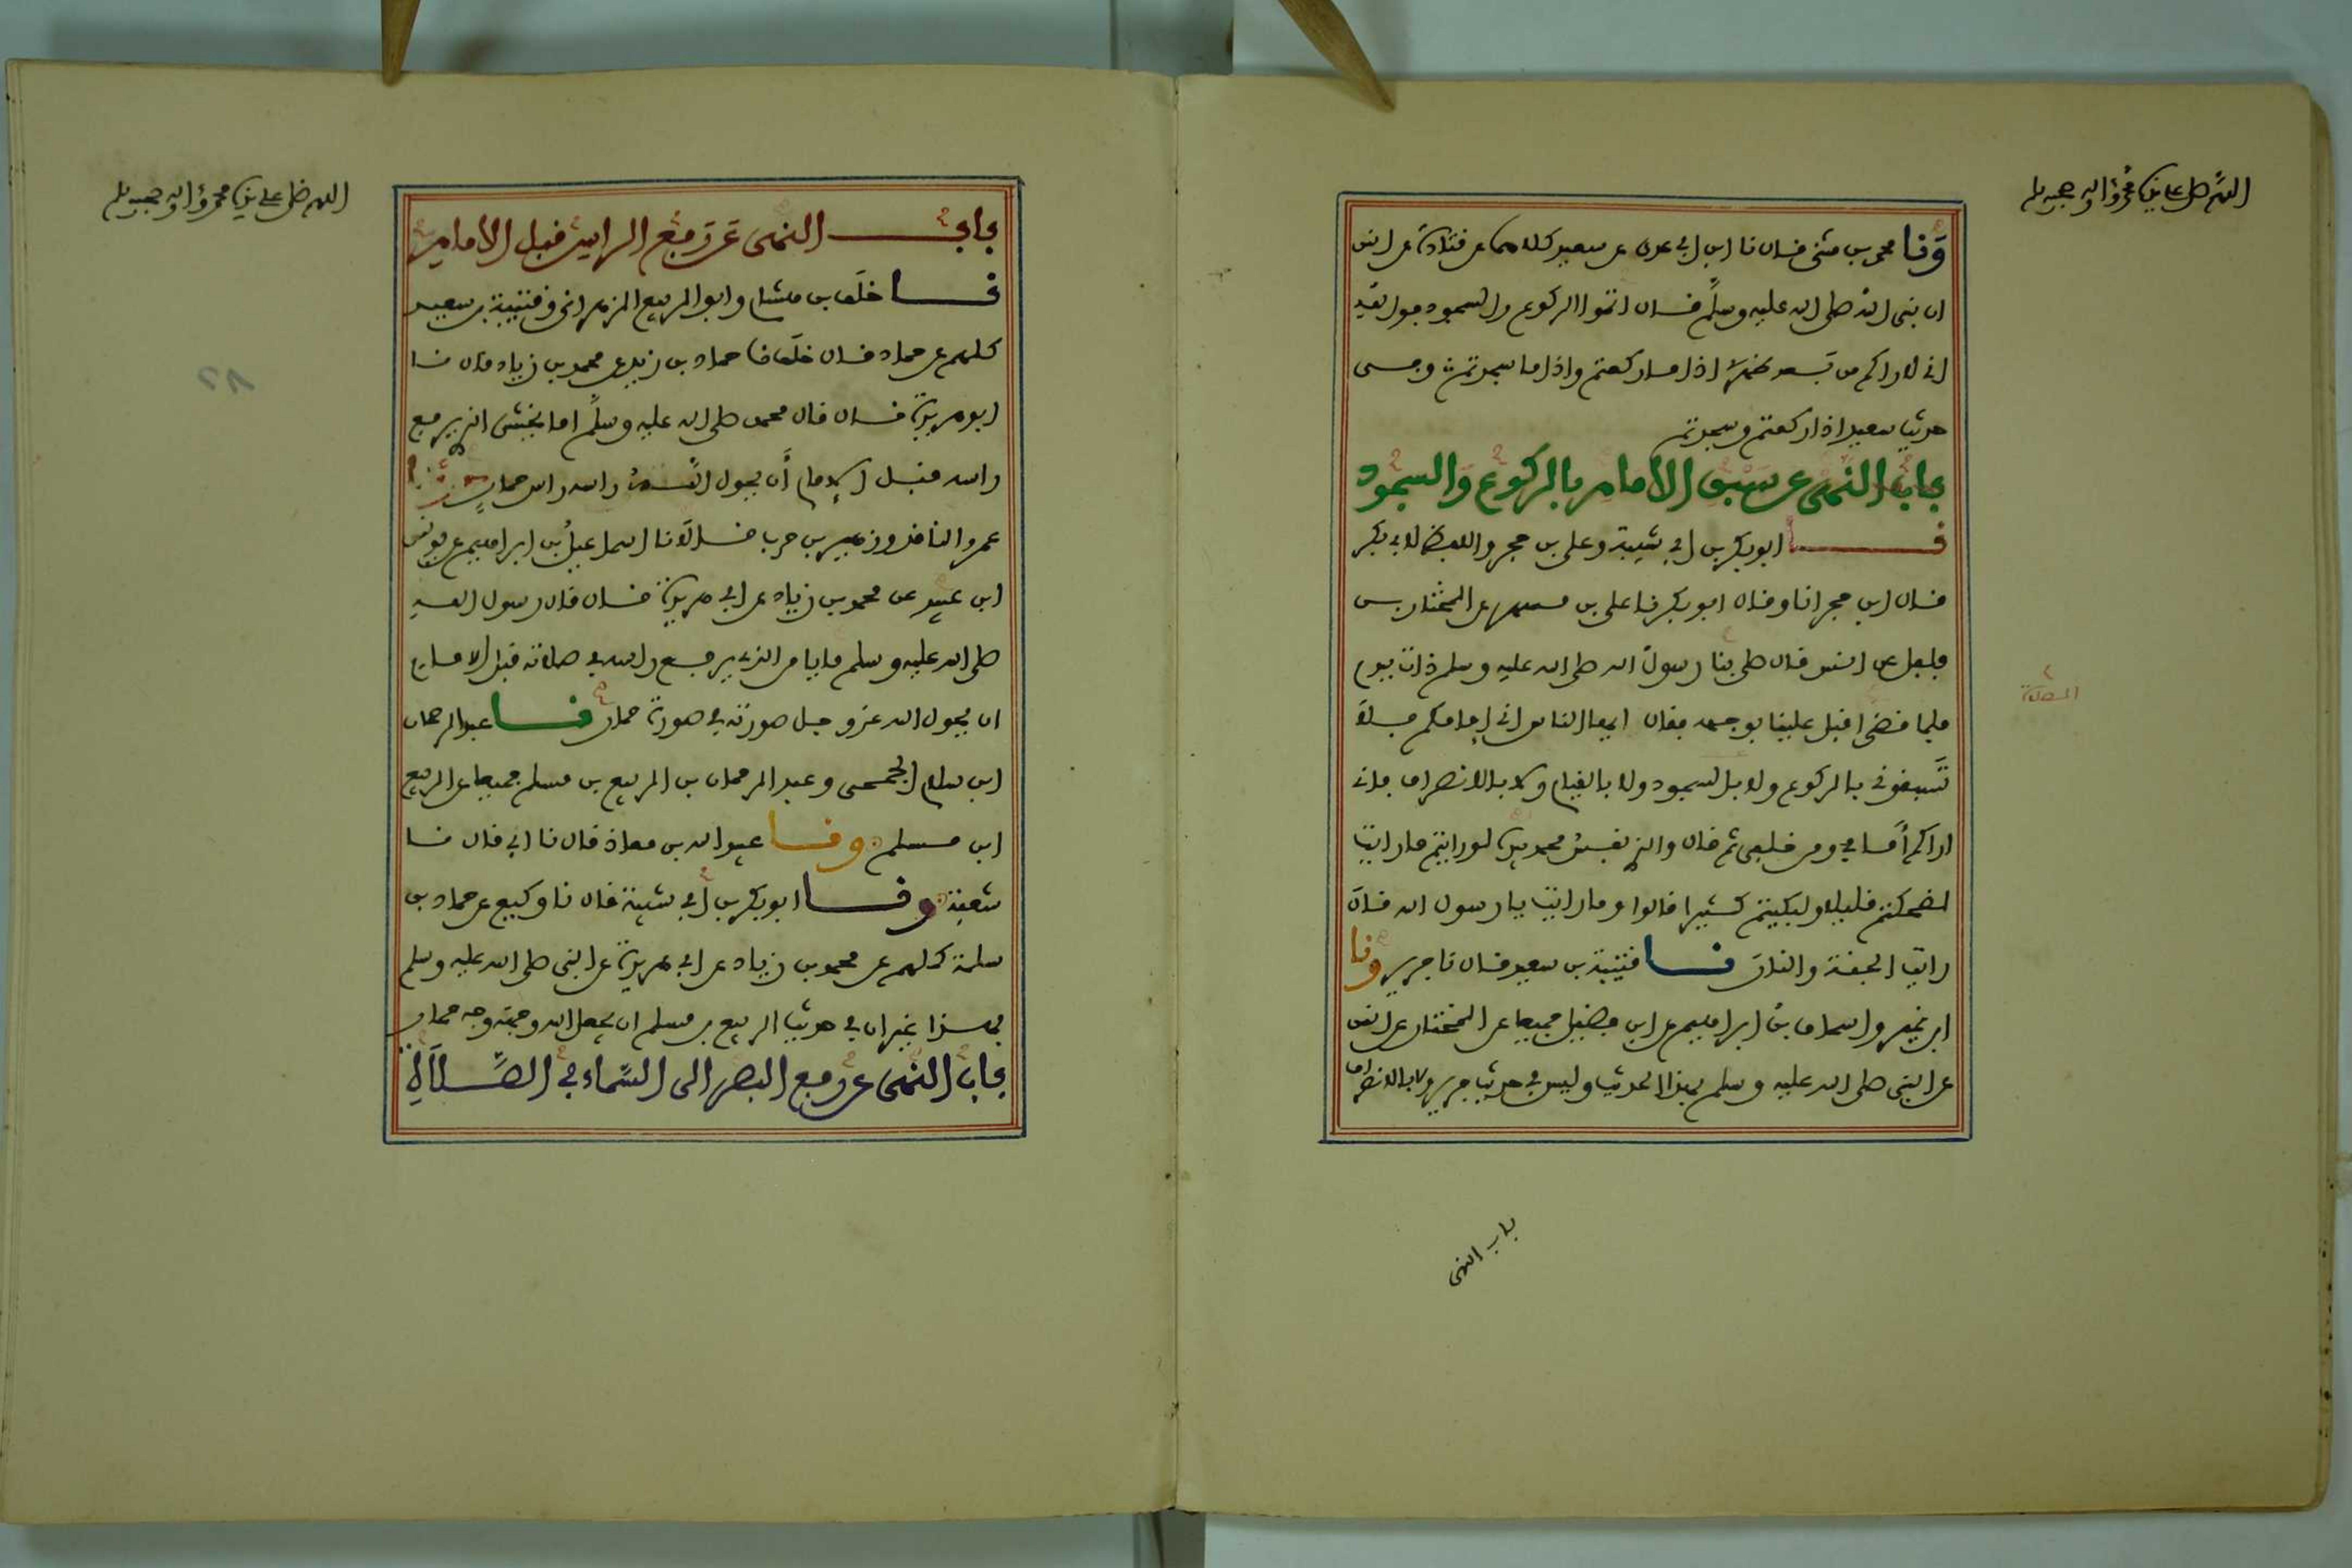 اللهم صل على نبينا محمد وءاله وصحبه وسلم
ونا محمد بن مثنى قال نا ابن ابي عدي عن سعيد كلاهما عن قتادة عن انس
ان نبي الله صلى الله عليه وسلم قال اتموا الركوع والسجود فوالله
اني لاراكم من بعد ظهري اذا ما ركعتم واذا ما سجدتم وفي
حديث سعيد اذا ركعتم وسجدتم
باب النهي عن سبق الامام بالركوع والسجود
نا ابو بكر بن ابي شيبة وعلي بن حجر واللفظ لابي بكر
قال ابن حجر انا وقال ابو بكر نا علي بن مسهر عن المختار بن
فلفل عن انس قال صلى بنا رسول الله صلى الله عليه وسلم ذات يوم
الصلاة
فلما قضى اقبل علينا بوجهه فقال ايها الناس اني امامكم فلا
تسبقوني بالركوع ولا بالسجود ولا بالقيام ولا بالانصراف فاني
اراكم أمامي ومن خلفي ثم قال والذي نفس محمد بيده لو رايتم ما رايت
لضحكتم قليلا ولبكيتم كثيرا قالوا وما رايت يا رسول الله قال
رايت الجنة والنار نا قتيبة بن سعيد قال نا جرير ونا
ابن نمير واسحاق بن ابراهيم عن ابن فضيل جميعا عن المختار عن انس
عن النبي صلى الله عليه وسلم بهذا الحديث وليس في حديث جرير ولا بالانصراف
باب النهي
اللهم صل على نبينا محمد وءاله وصحبه وسلم
باب النهي عن رفع الراس قبل الامام
نا خلف بن هشام وابو الربيع الزهراني وقتيبة بن سعيد
كلهم عن حماد قال خلف نا حماد بن زيد عن محمد بن زياد قال نا
ابو هريرة قال قال محمد صلى الله عليه وسلم اما يخشى الذي يرفع
راسه قبل الامام أن يحول الله راسه راس حمار حدثنا
عمرو الناقد وزهير بن حرب قالا نا اسماعيل بن ابراهيم عن يونس
ابن عبيد عن محمد بن زياد عن ابي هريرة قال قال رسول الله
صلى الله عليه وسلم ما يامن الذي يرفع راسه في صلاته قبل الامام
ان يحول الله عز وجل صورته في صورة حمار نا عبد الرحمان
ابن سلام الجمحي وعبد الرحمان بن الربيع بن مسلم جميعا عن الربيع
ابن مسلم ونا عبيد الله بن معاذ قال نا ابي قال نا
شعبة ونا ابو بكر بن أبي شيبة قال نا وكيع عن حماد بن
سلمة كلهم عن محمد بن زياد عن ابي هريرة عن النبي صلى الله عليه وسلم
بهذا غير ان في حديث الربيع بن مسلم ان يجعل الله وجهه وجه حمار
باب النهي عن رفع البصر الى السماء في الصلاة